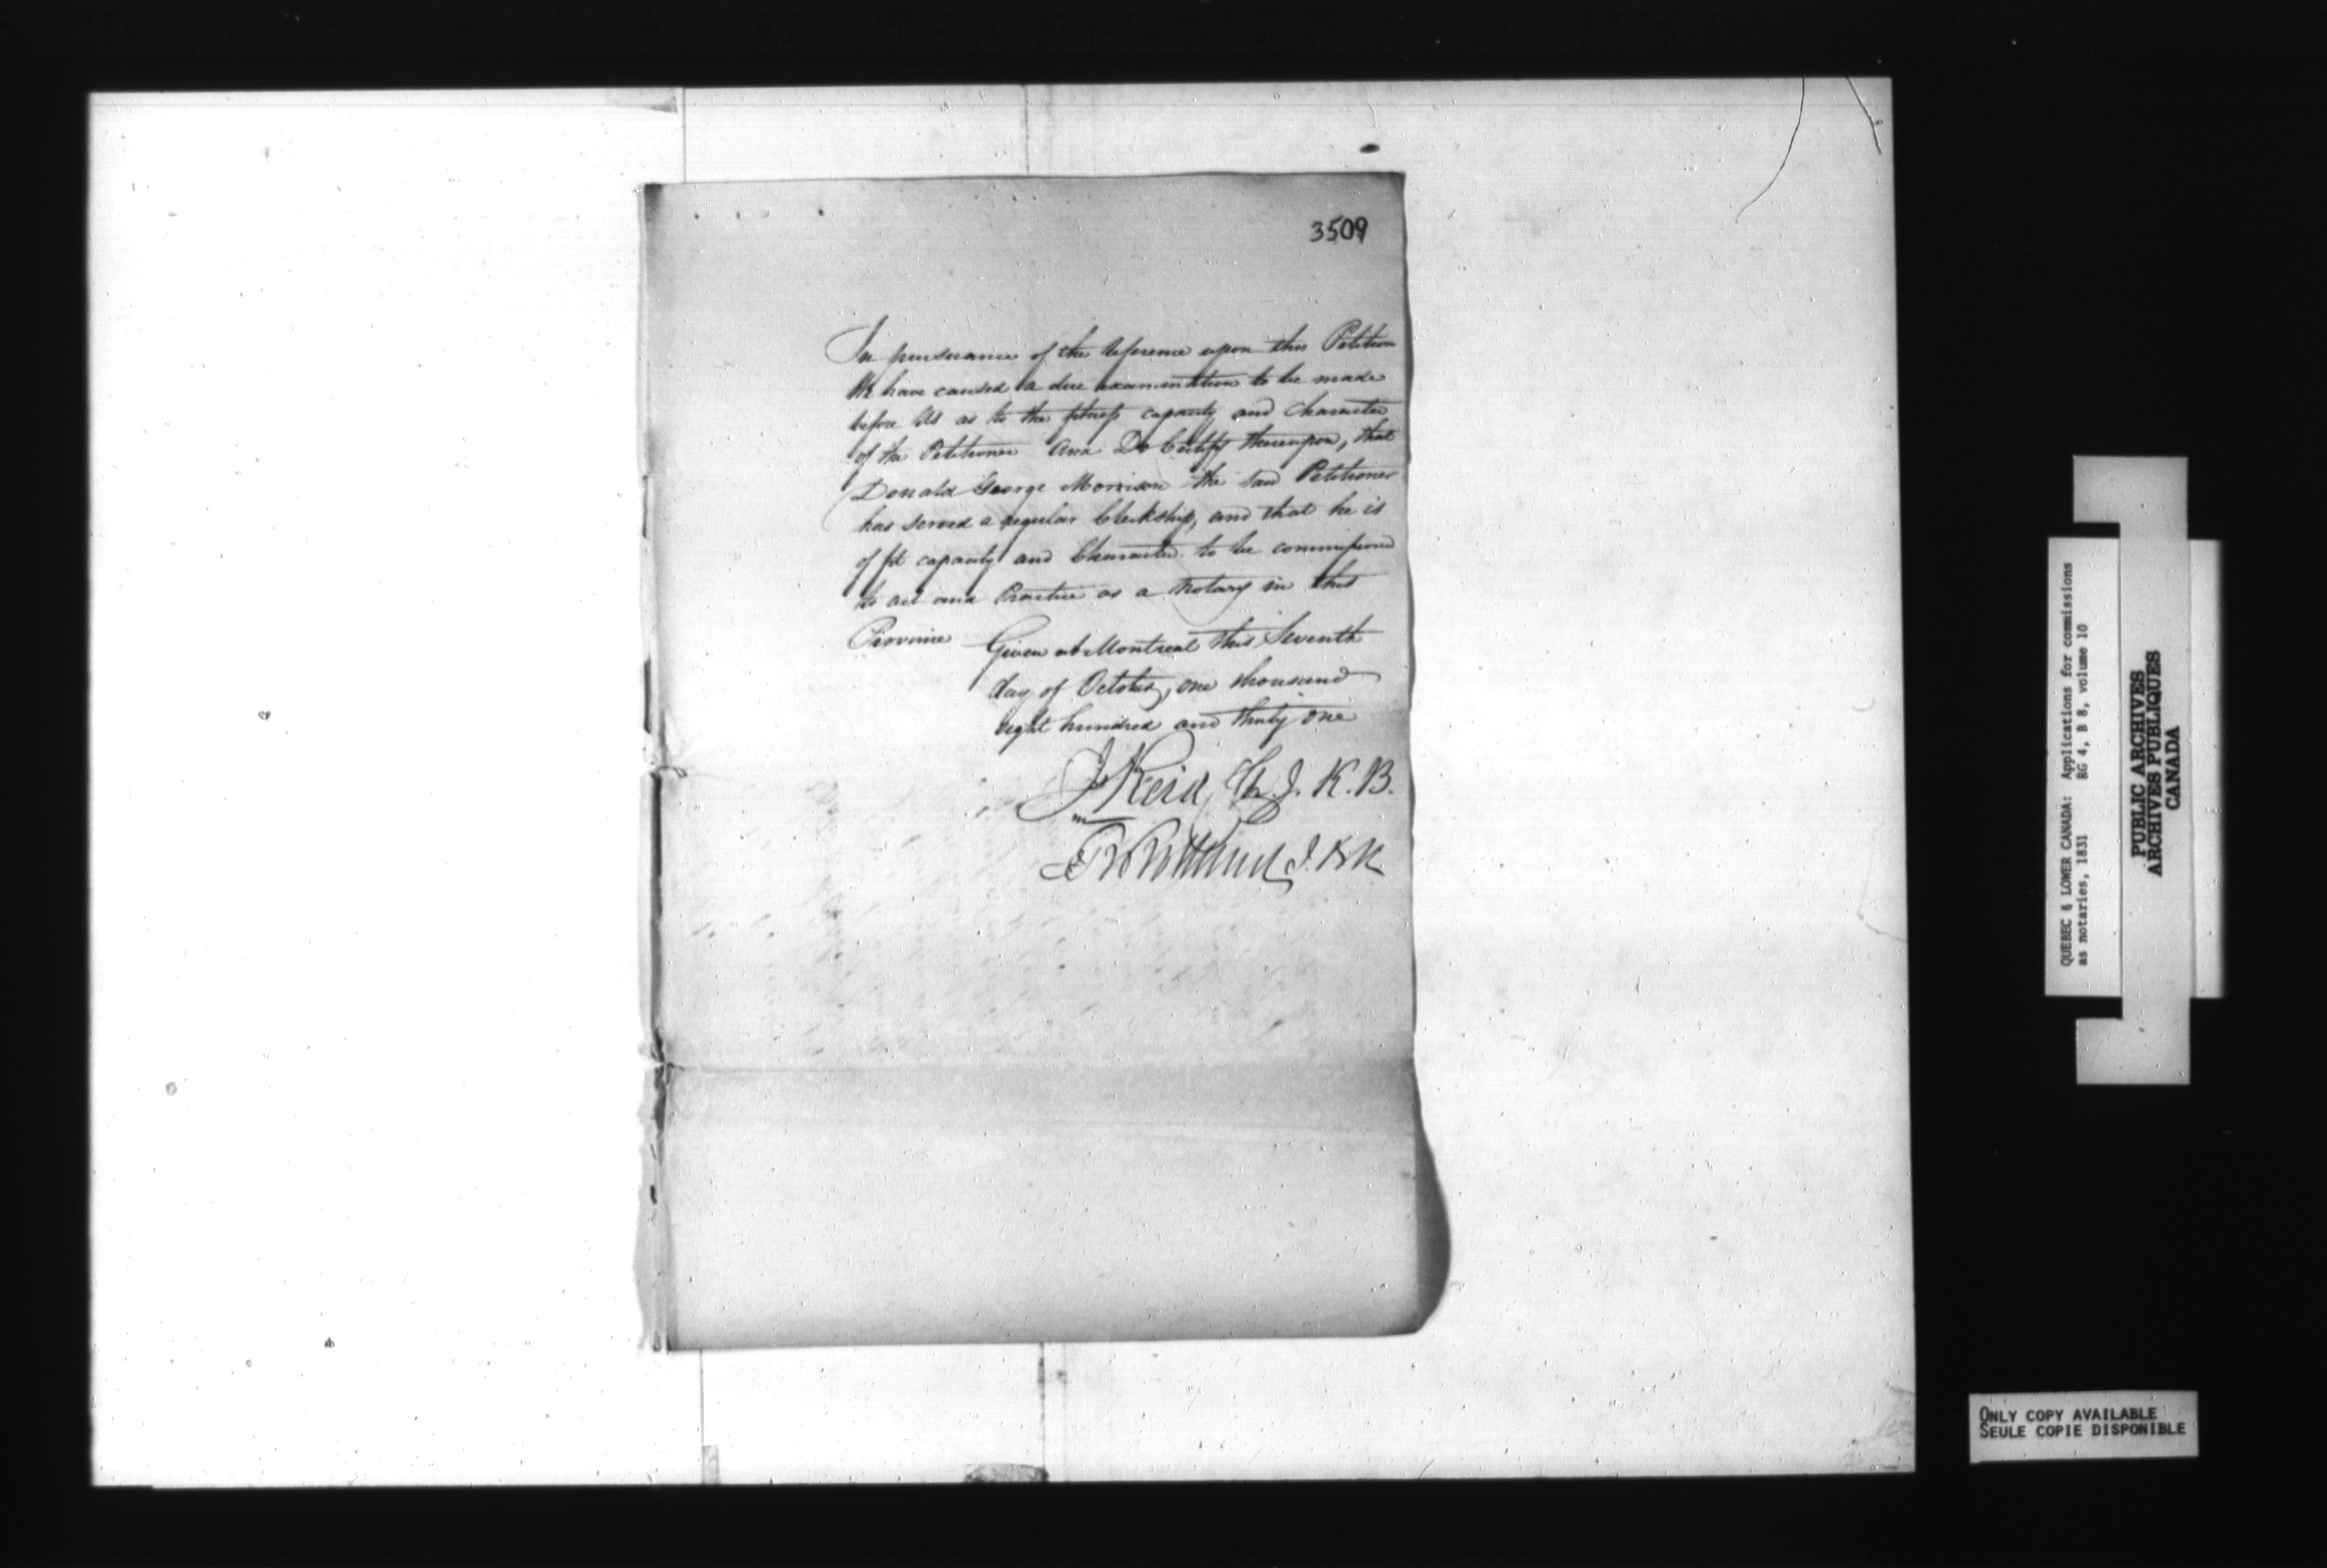 3509
In pursuance of the Reference upon this Petition
We have caused a due examination to be made
before Us as to the fitness capacity and Character
of the Petitioner And Do Certify thereupon, that
Donald George Morrison the said Petitioner
has served a regular Clerkship, and that he is
of fit capacity and Character to be commissioned
to act and Practice as a Notary in this
Province Given at Montreal this Seventh
day of October, one thousand
eight hundred and thirty one
J Reid, Ch. J. K. B.
J. K B
QUEBEC & LOWER CANADA: Applications for commissions
as notaries, 1831 RG 4, B 8, volume 10
PUBLIC ARCHIVES
ARCHIVES PUBLIQUES
CANADA
ONLY COPY AVAILABLE
SEULE COPIE DISPONIBLE